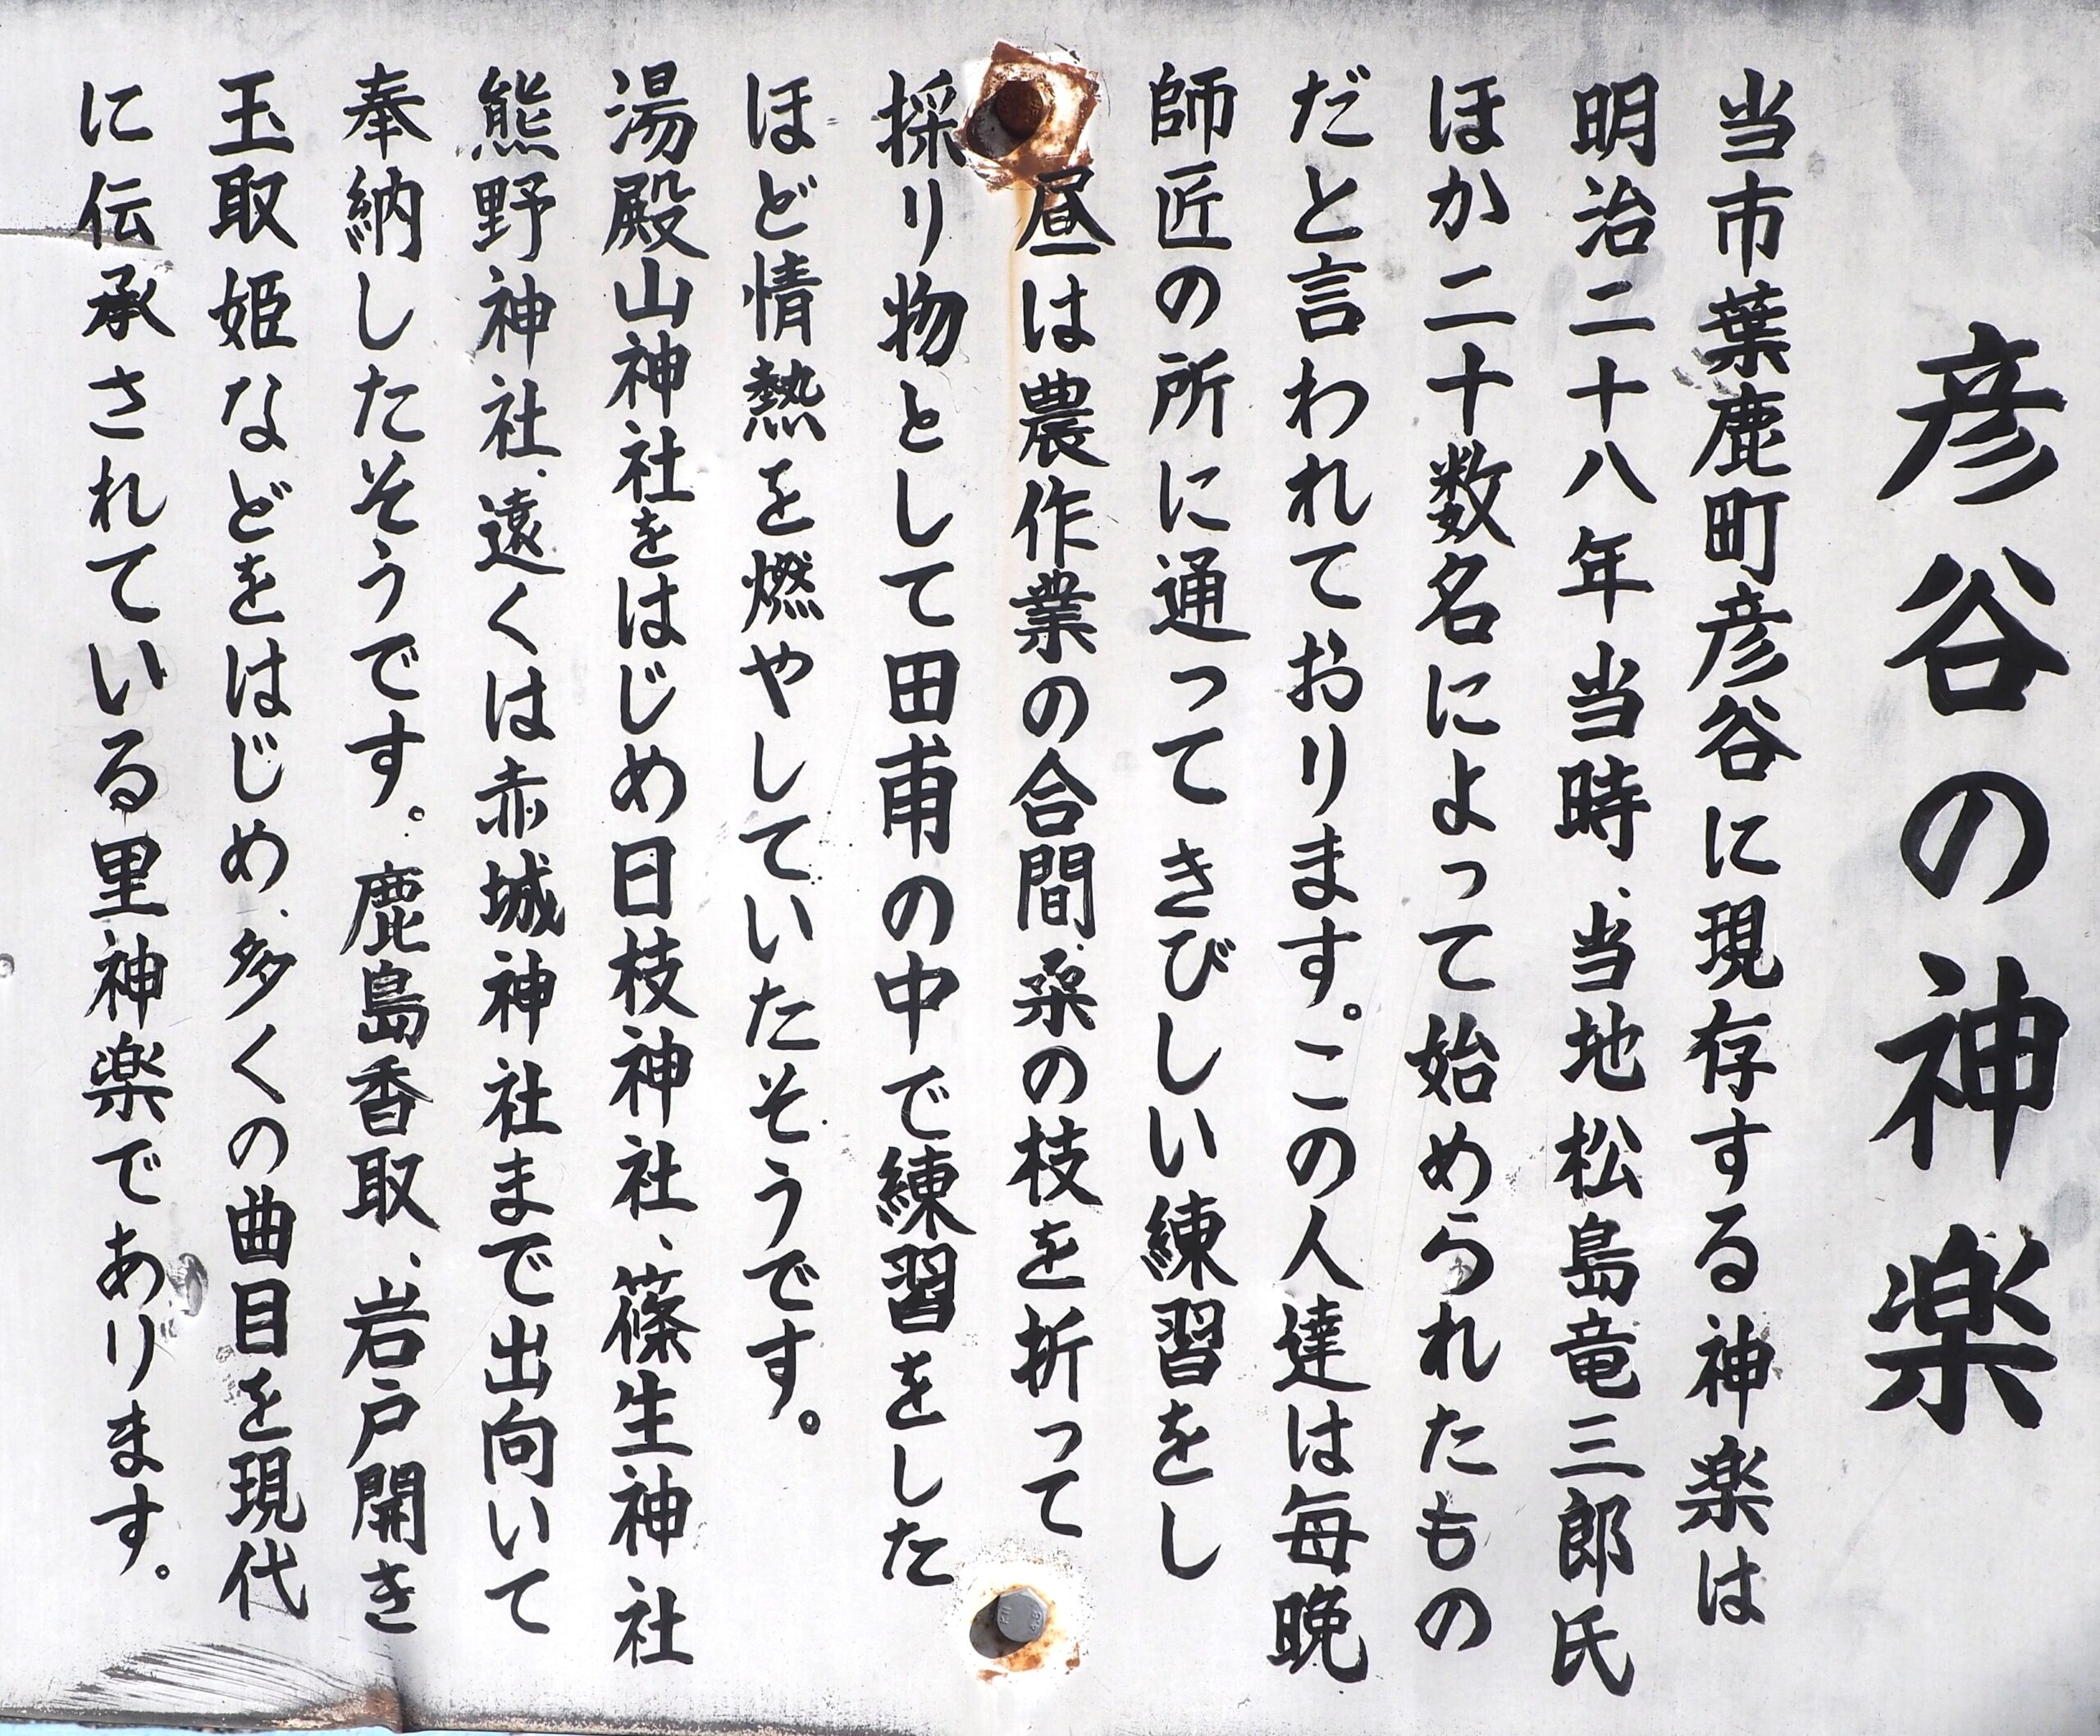 彦谷の神楽
当市葉鹿町彦谷に現存する神楽は
明治二十八年当時、当地松島竜三郎氏
ほか二十数名によって始められたもの
だと言われております。この人達は毎晩
師匠の所に通ってきびしい練習をし
昼は農作業の合間、桑の枝を折って
採り物として田甫の中で練習をした
ほど情熱を燃やしていたそうです。
湯殿山神社をはじめ日枝神社、篠生神社
熊野神社、遠くは赤城神社まで出向いて
奉納したそうです。鹿島香取、岩戸開き
玉取姫などをはじめ、多くの曲目を現代
に伝承されている里神楽であります。